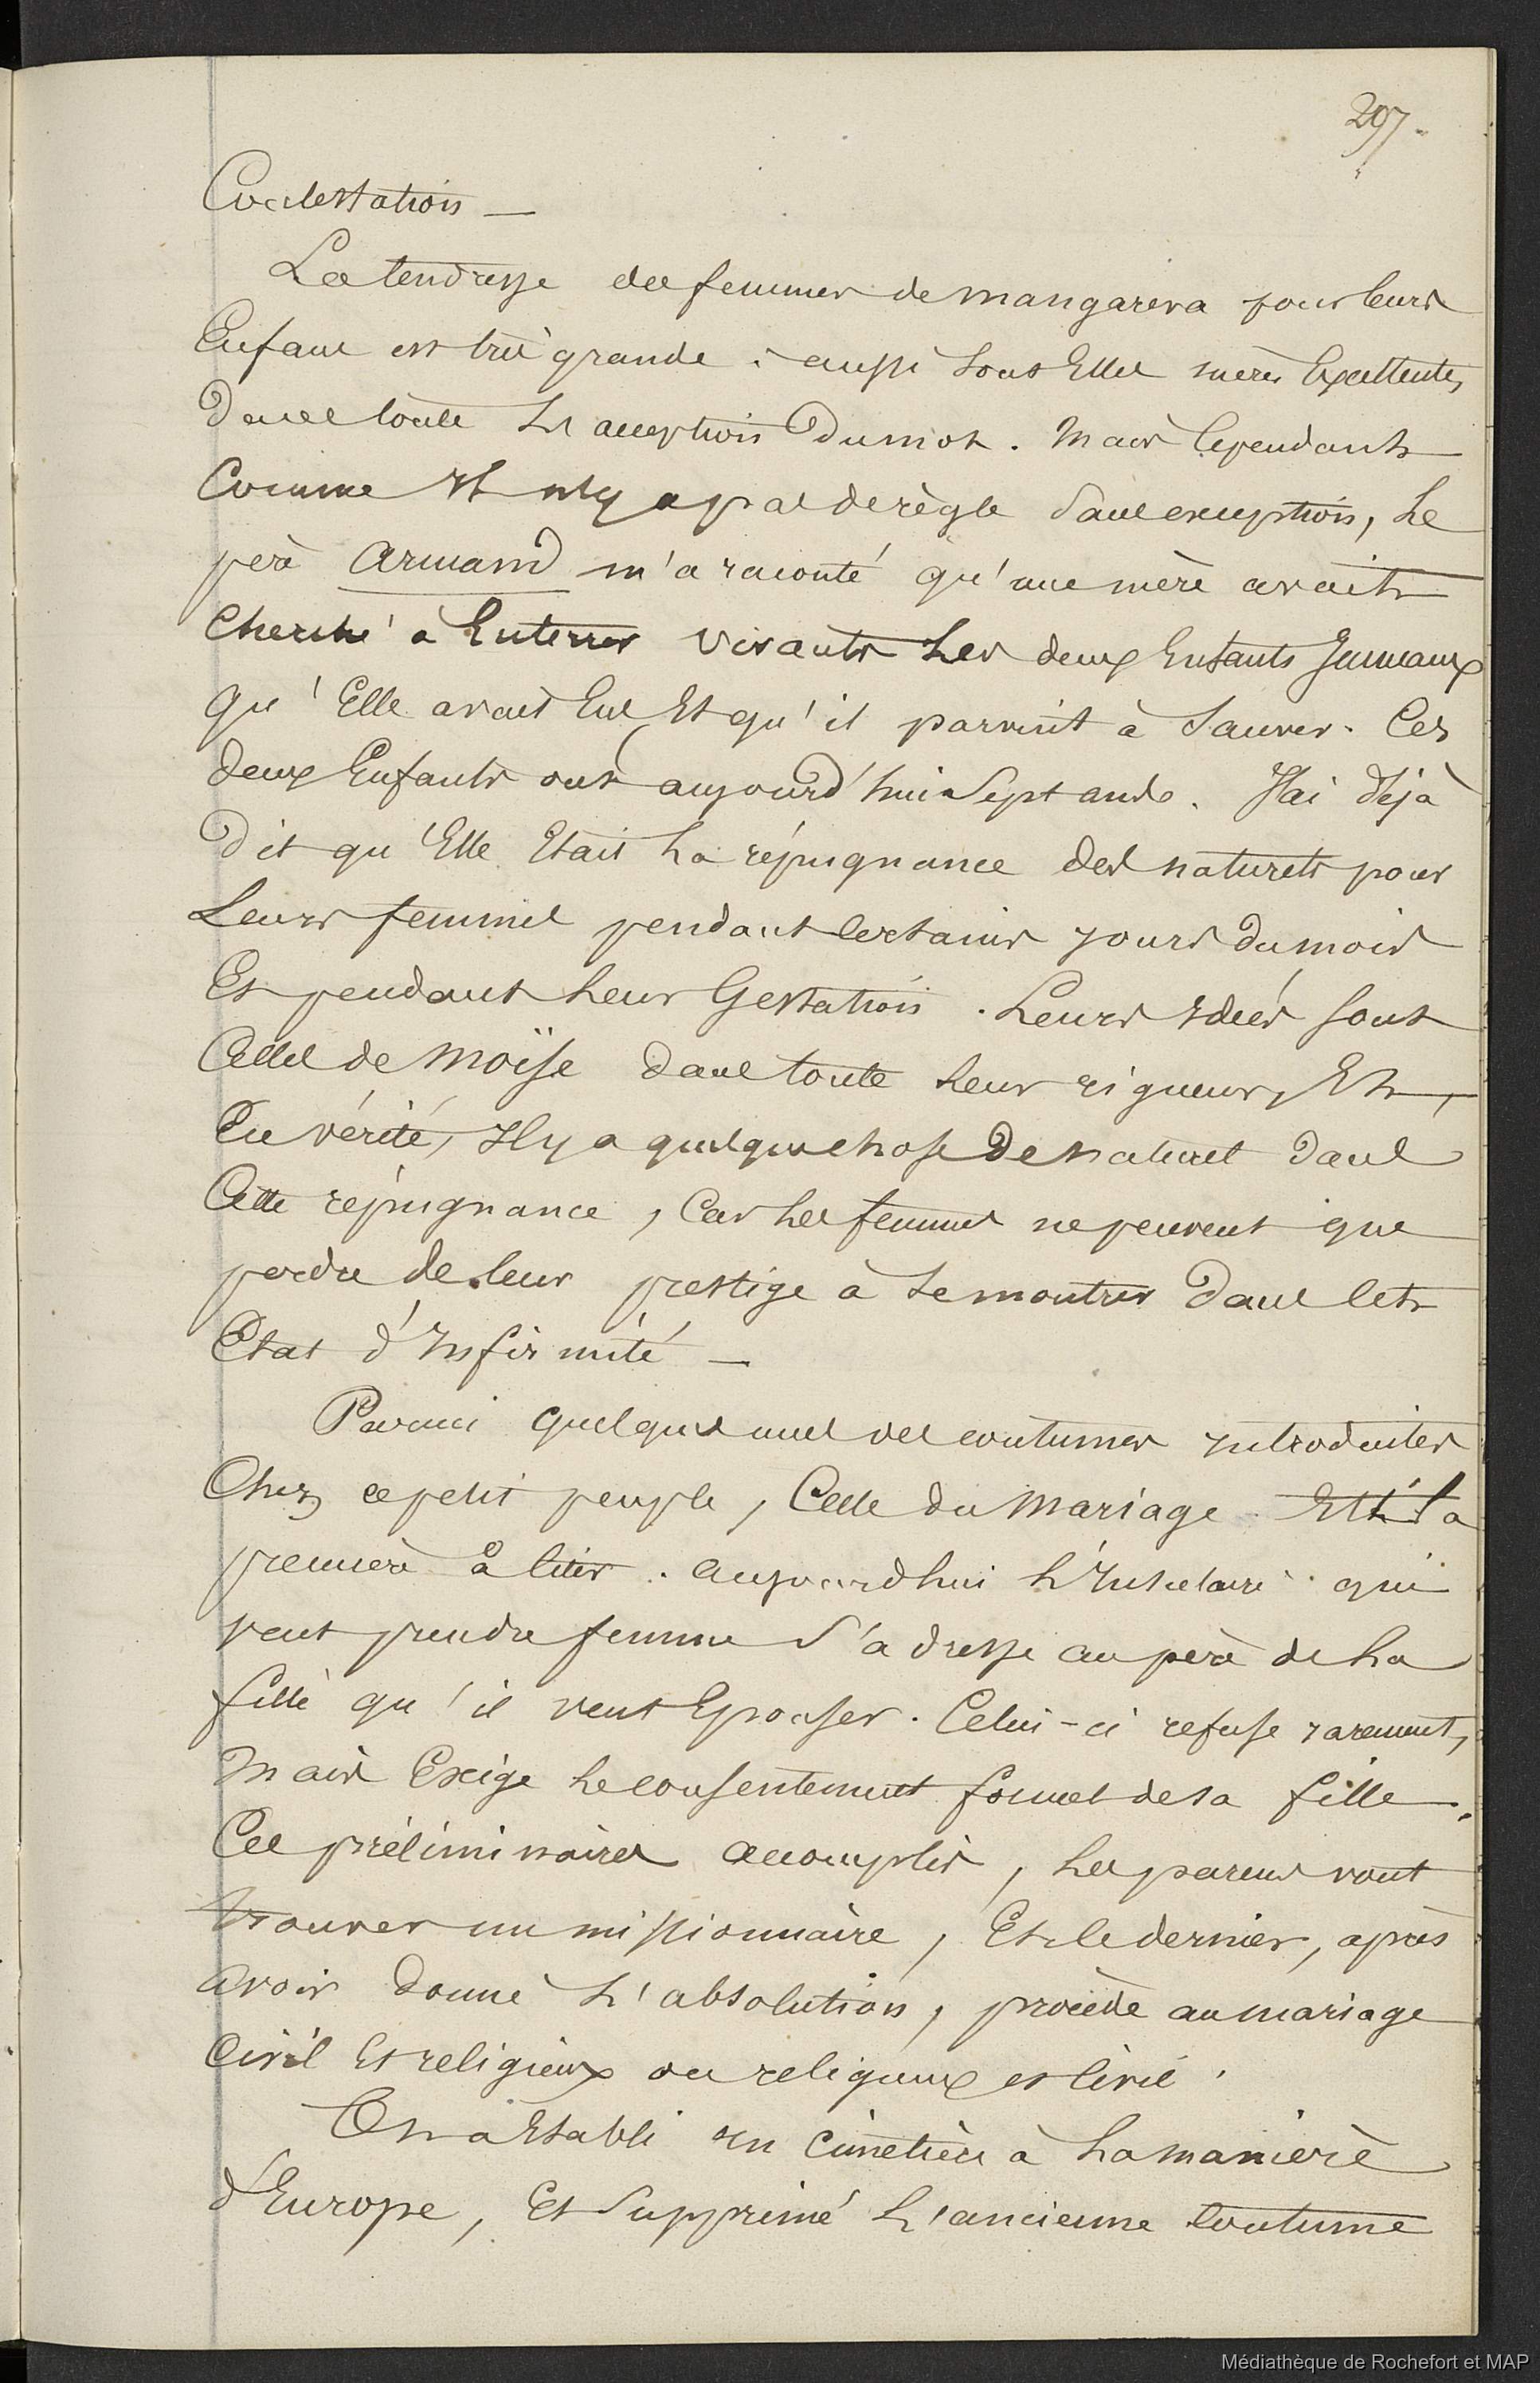 297.
Contestation —
La tendresse des femmes de mangareva pour leurs
Enfans est très grande ; aussi sont Elles mères Excellentes,
dans toute L'acception du mot. Mais Cependant
Comme Il n'y a pas de règle sans exception, Le
père Armand m'a raconté qu'une mère avait
Cherché à Enterrer vivants Les deux Enfants Jumeaux
qu'Elle avait Eus Et qu'il parvint à Sauver. Ces
deux Enfants ont aujourd'hui Sept ands. J'ai déjà
Dit qu'Elle Etait La répugnance des naturels pour
Leurs femmes pendant Certains jours du mois
Et pendant Leur Gestation. Leurs Idées sont
Celles de Moïse dans toute Leur rigueur, Et,
En vérité, Il y a quelque chose De naturel dans
Cette répugnance, Car Les femmes ne peuvent que
perdre de Leur prestige à Se montrer Dans Cet
Etat d'Infirmité —
Parmi quelques unes des coutumes Introduites
Chez ce petit peuple, Celle du Mariage Est La
première à Citer. Aujourd'hui L'Insulaire qui
veut prendre femme S'adresse au père de La
fille qu'il veut Epouser. Celui-ci refuse rarement,
Mais Exige Le consentement formel de sa fille.
Ces préliminaires accomplis, Les parens vont
trouver un missionnaire, Et Ce dernier, après
avoir donné L'absolution, procède au mariage
Civil Et religieux ou religieux et Civil.
On a Etabli un Cimetière à La manière
d'Europe, Et Supprimé L'ancienne Coutume
Médiathèque de Rochefort et MAP